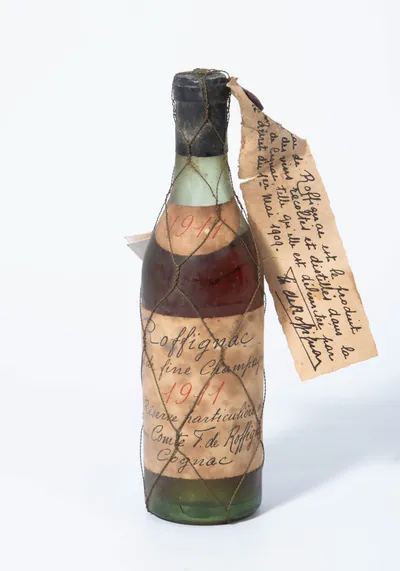 1911
Roffignac
fine Champag
1911
Réserve particulière
Comte F. de Roffign
Cognac
de Roffignac est le produit
des vins récoltés et distillés dans la
de Cognac, telle qu'elle est délimitée par
décret du 1er Mai 1909.
de Roffignac